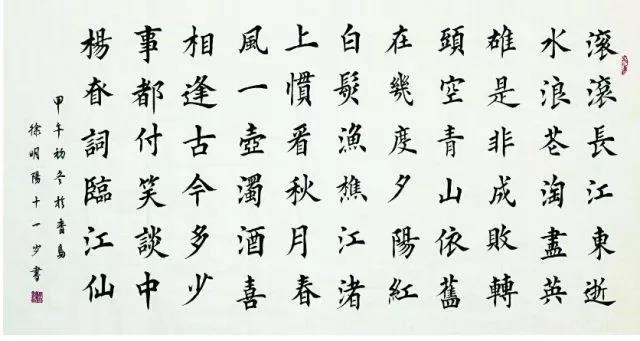 滚滚長江東逝
水浪花淘盡英
雄是非成敗轉
頭空青山依舊
在幾度夕陽紅
白髮漁樵江渚
上慣看秋月春
風一壺濁酒喜
相逢古今多少
事都付笑談中
楊昚詞臨江仙
甲午初冬於青島
徐明陽十一岁書